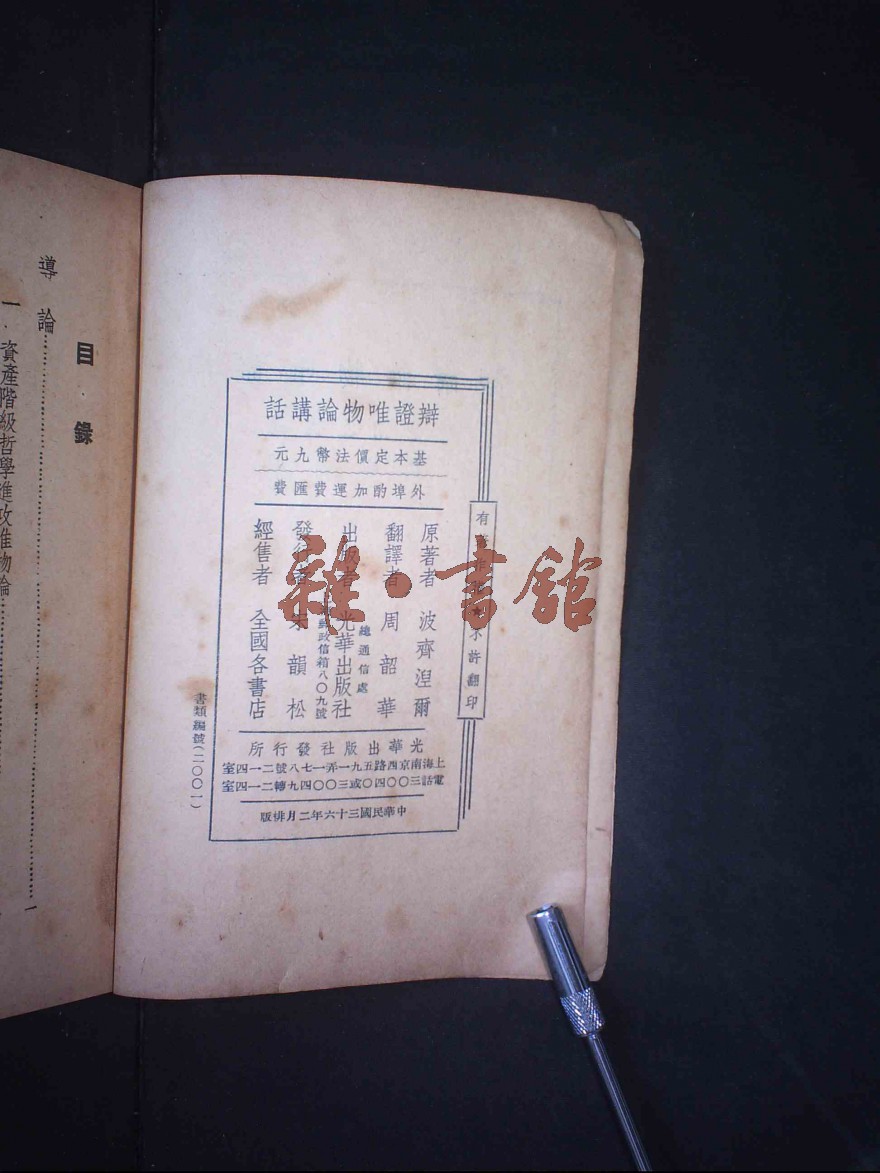 辯證唯物論講話
基本定價法幣九元
外埠酌加運費匯費
原著者 波齊涅爾
翻譯者 周韶華
總通信處
出版者 光華出版社
郵政信箱八〇九號
發行者 宋韻松
經售者 全國各書店
光華出版社發行所
上海南京西路五九一弄一七八號二一四室
電話三〇〇四〇或三〇〇四九轉二一四室
中華民國三十六年二月排版
有 不許翻印
書類編號(二〇〇一)
雜·書館
目錄
導論 一
一·資產階級哲學進攻唯物論